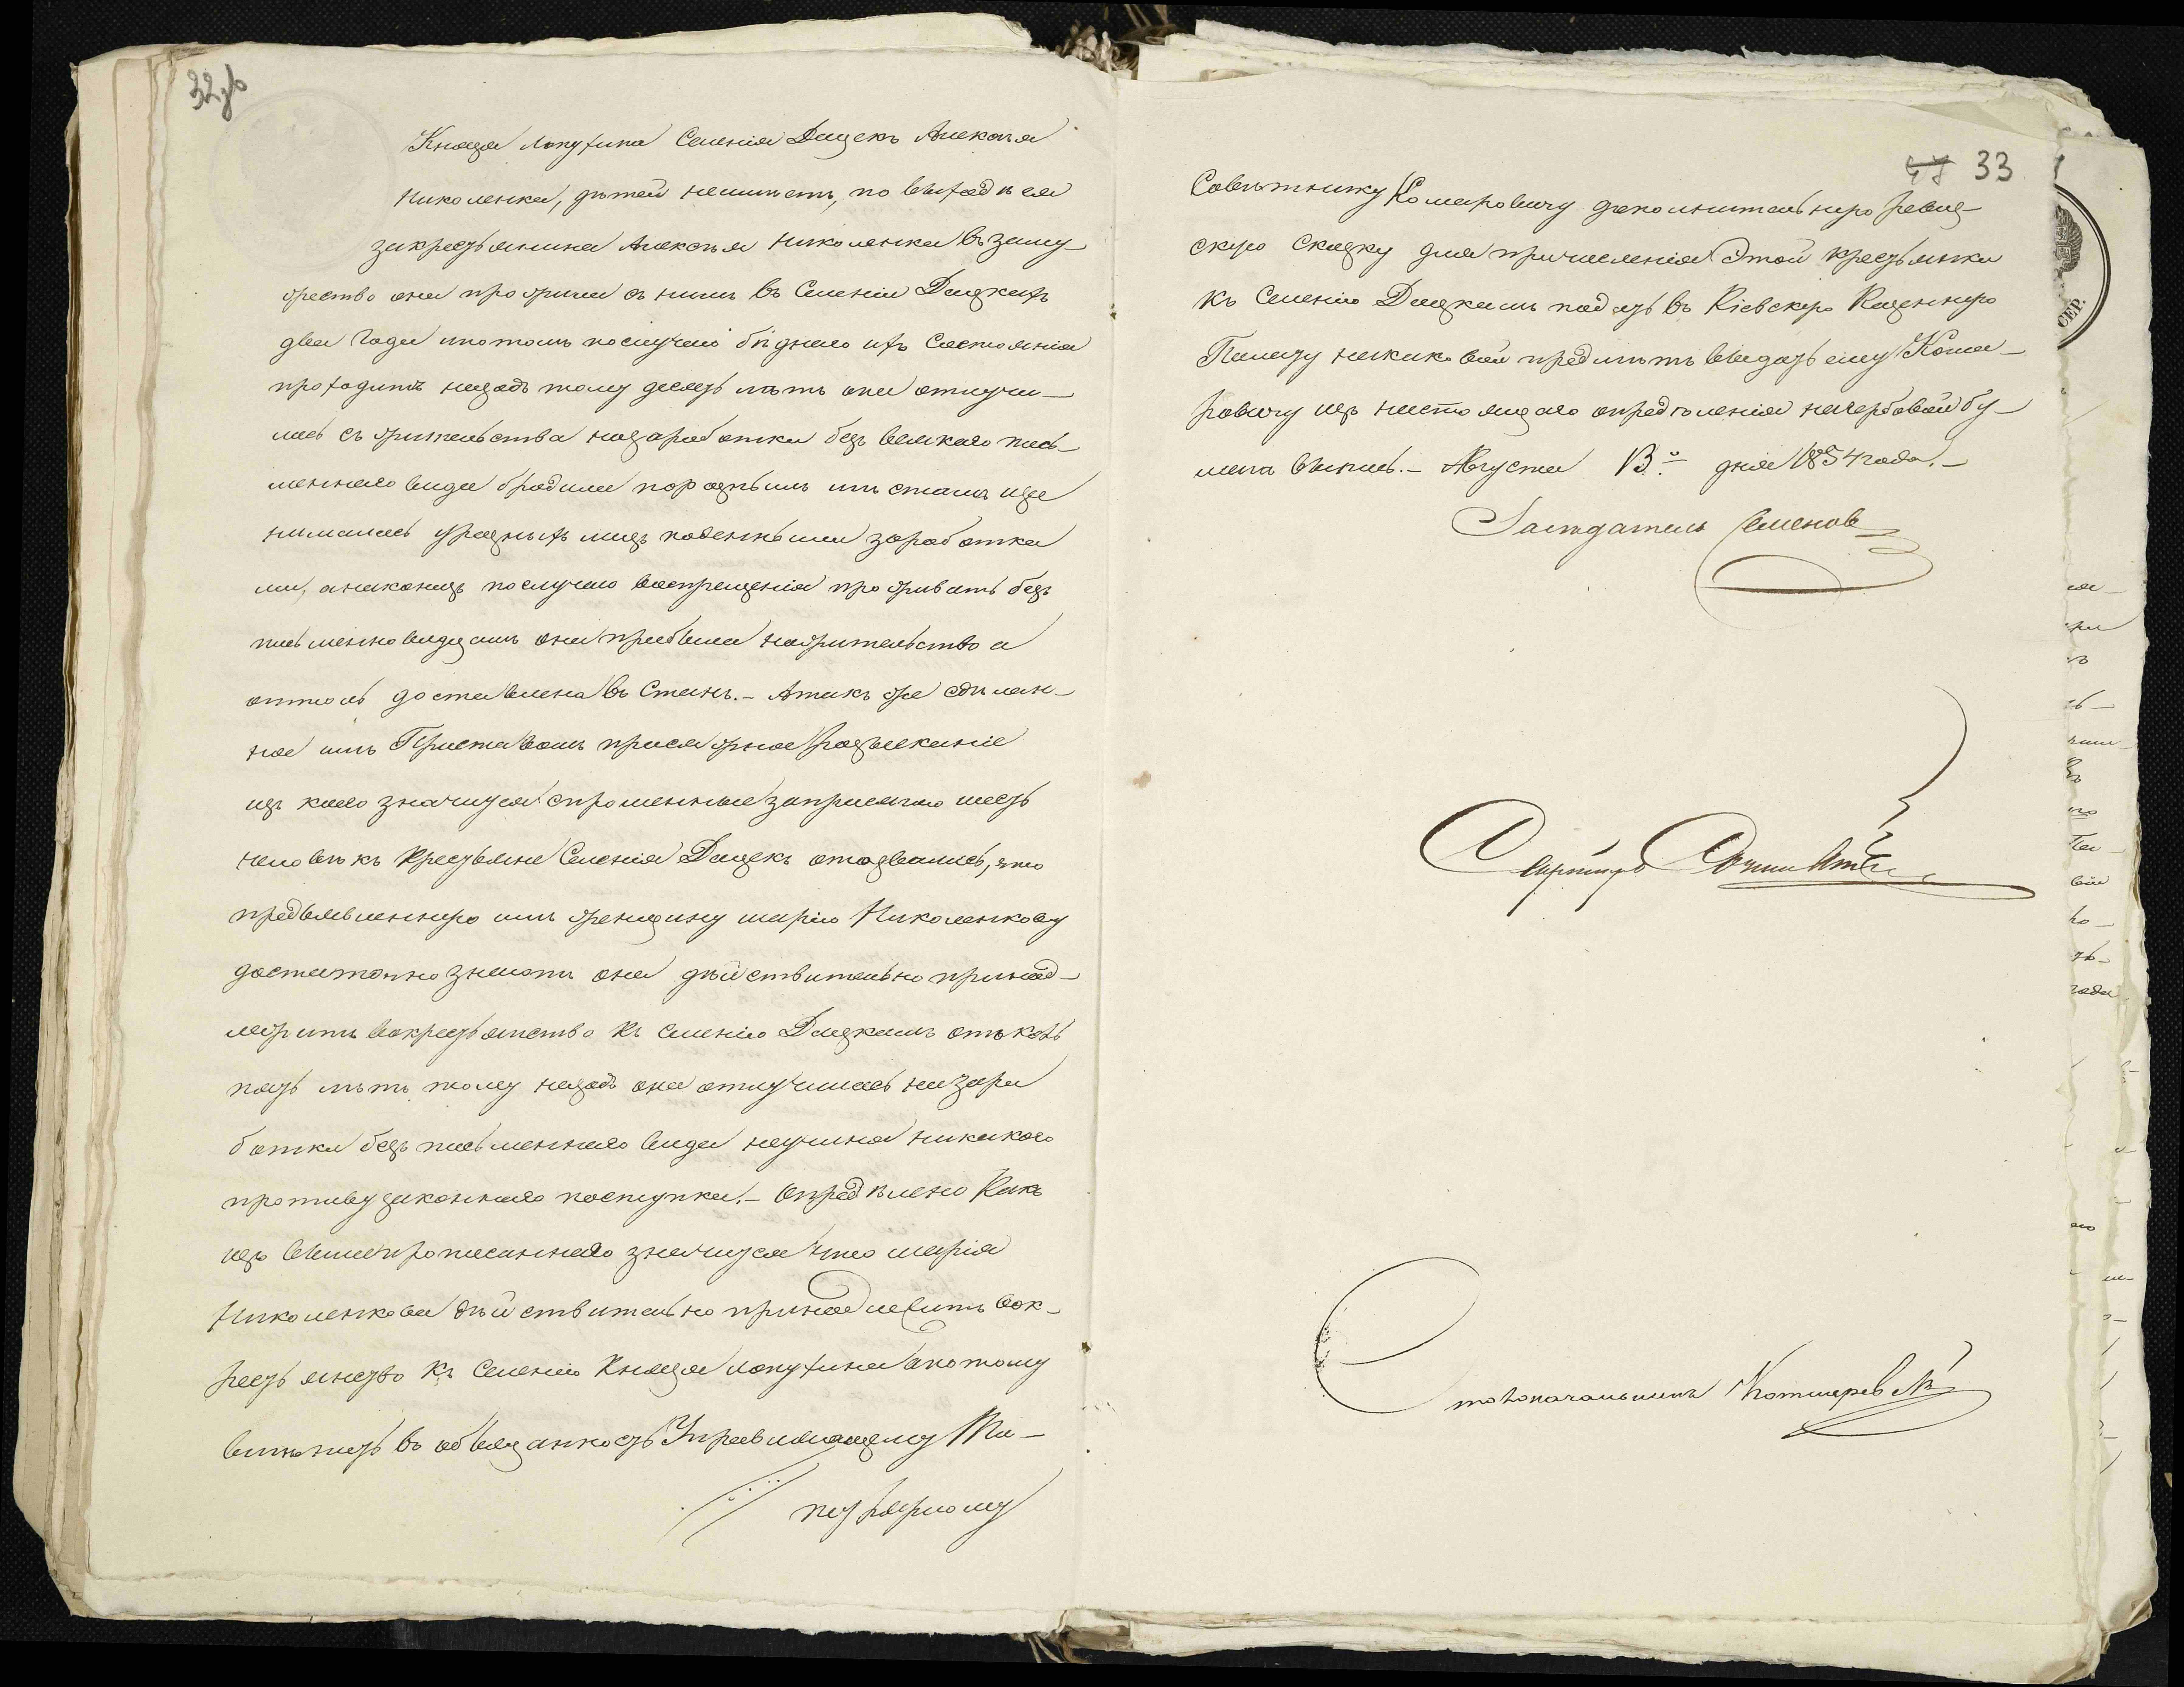 32об
Князя Лопухина Селенія Дацекъ Алексѣя
Николенка, дѣтей неимѣетъ, по выходѣ ея
закрестьянина Алексѣя Николенка въ заму-
жество она прожила съ нимъ въ Селеніи Дацкахъ
два года ипотомъ послучаю бѣднаго ихъ Состоянія
проходитъ назадъ тому десять лѣтъ она отлучи-
лась съ жительства назаработки безъ всякаго пись-
меннаго вида бродила поразнымъ мѣстамъ иза
нималась уразныхъ лицъ поденными заработка
ми, анаконецъ послучаю воспрещенія проживать безъ
письменновидцамъ она прибыла нажительство а
оттоль доставлена въ Станъ. - Атакъ же сдѣлан-
ное имъ Приставомъ присяжное розысканіе
изъ коего значится спрошенные заприсягою шесть
человѣкъ крестьяне Селенія Дацекъ отозвались, что
предъявленную имъ женщину марію Николенкову
достаточно знаютъ она дѣйствительно принад-
лежитъ вокрестьянство къ Селенію Дацкамъ отъ коль
пять лѣтъ тому назадъ она отлучилась на зара
ботки безъ письменнаго вида неучиня никакого
противузаконнаго поступка. - Опредѣлено Какъ
изъ вышепрописаннаго значится что марія
Николенкова дѣйствительно принадлежитъ вок-
рестьянство къ Селенію Князя Лопухина апотому
вмѣнить въ обязанность Управляющему Ти-
тулярному
33
Совѣтнику Комаровичу дополнительную ревиз-
скую Сказку для причисленія Этой крестьянки
къ Селенію Дацкамъ подать въ Кіевскую Казенную
Палату накаковой предмѣтъ выдать ему Кома-
ровичу изъ настоящаго опредѣленія негербовой бу-
маги выпись. - Августа 13.го дня 1854 года. -
Засѣдатель Семенов
Секретарь
Столоначальникъ
СЕР.